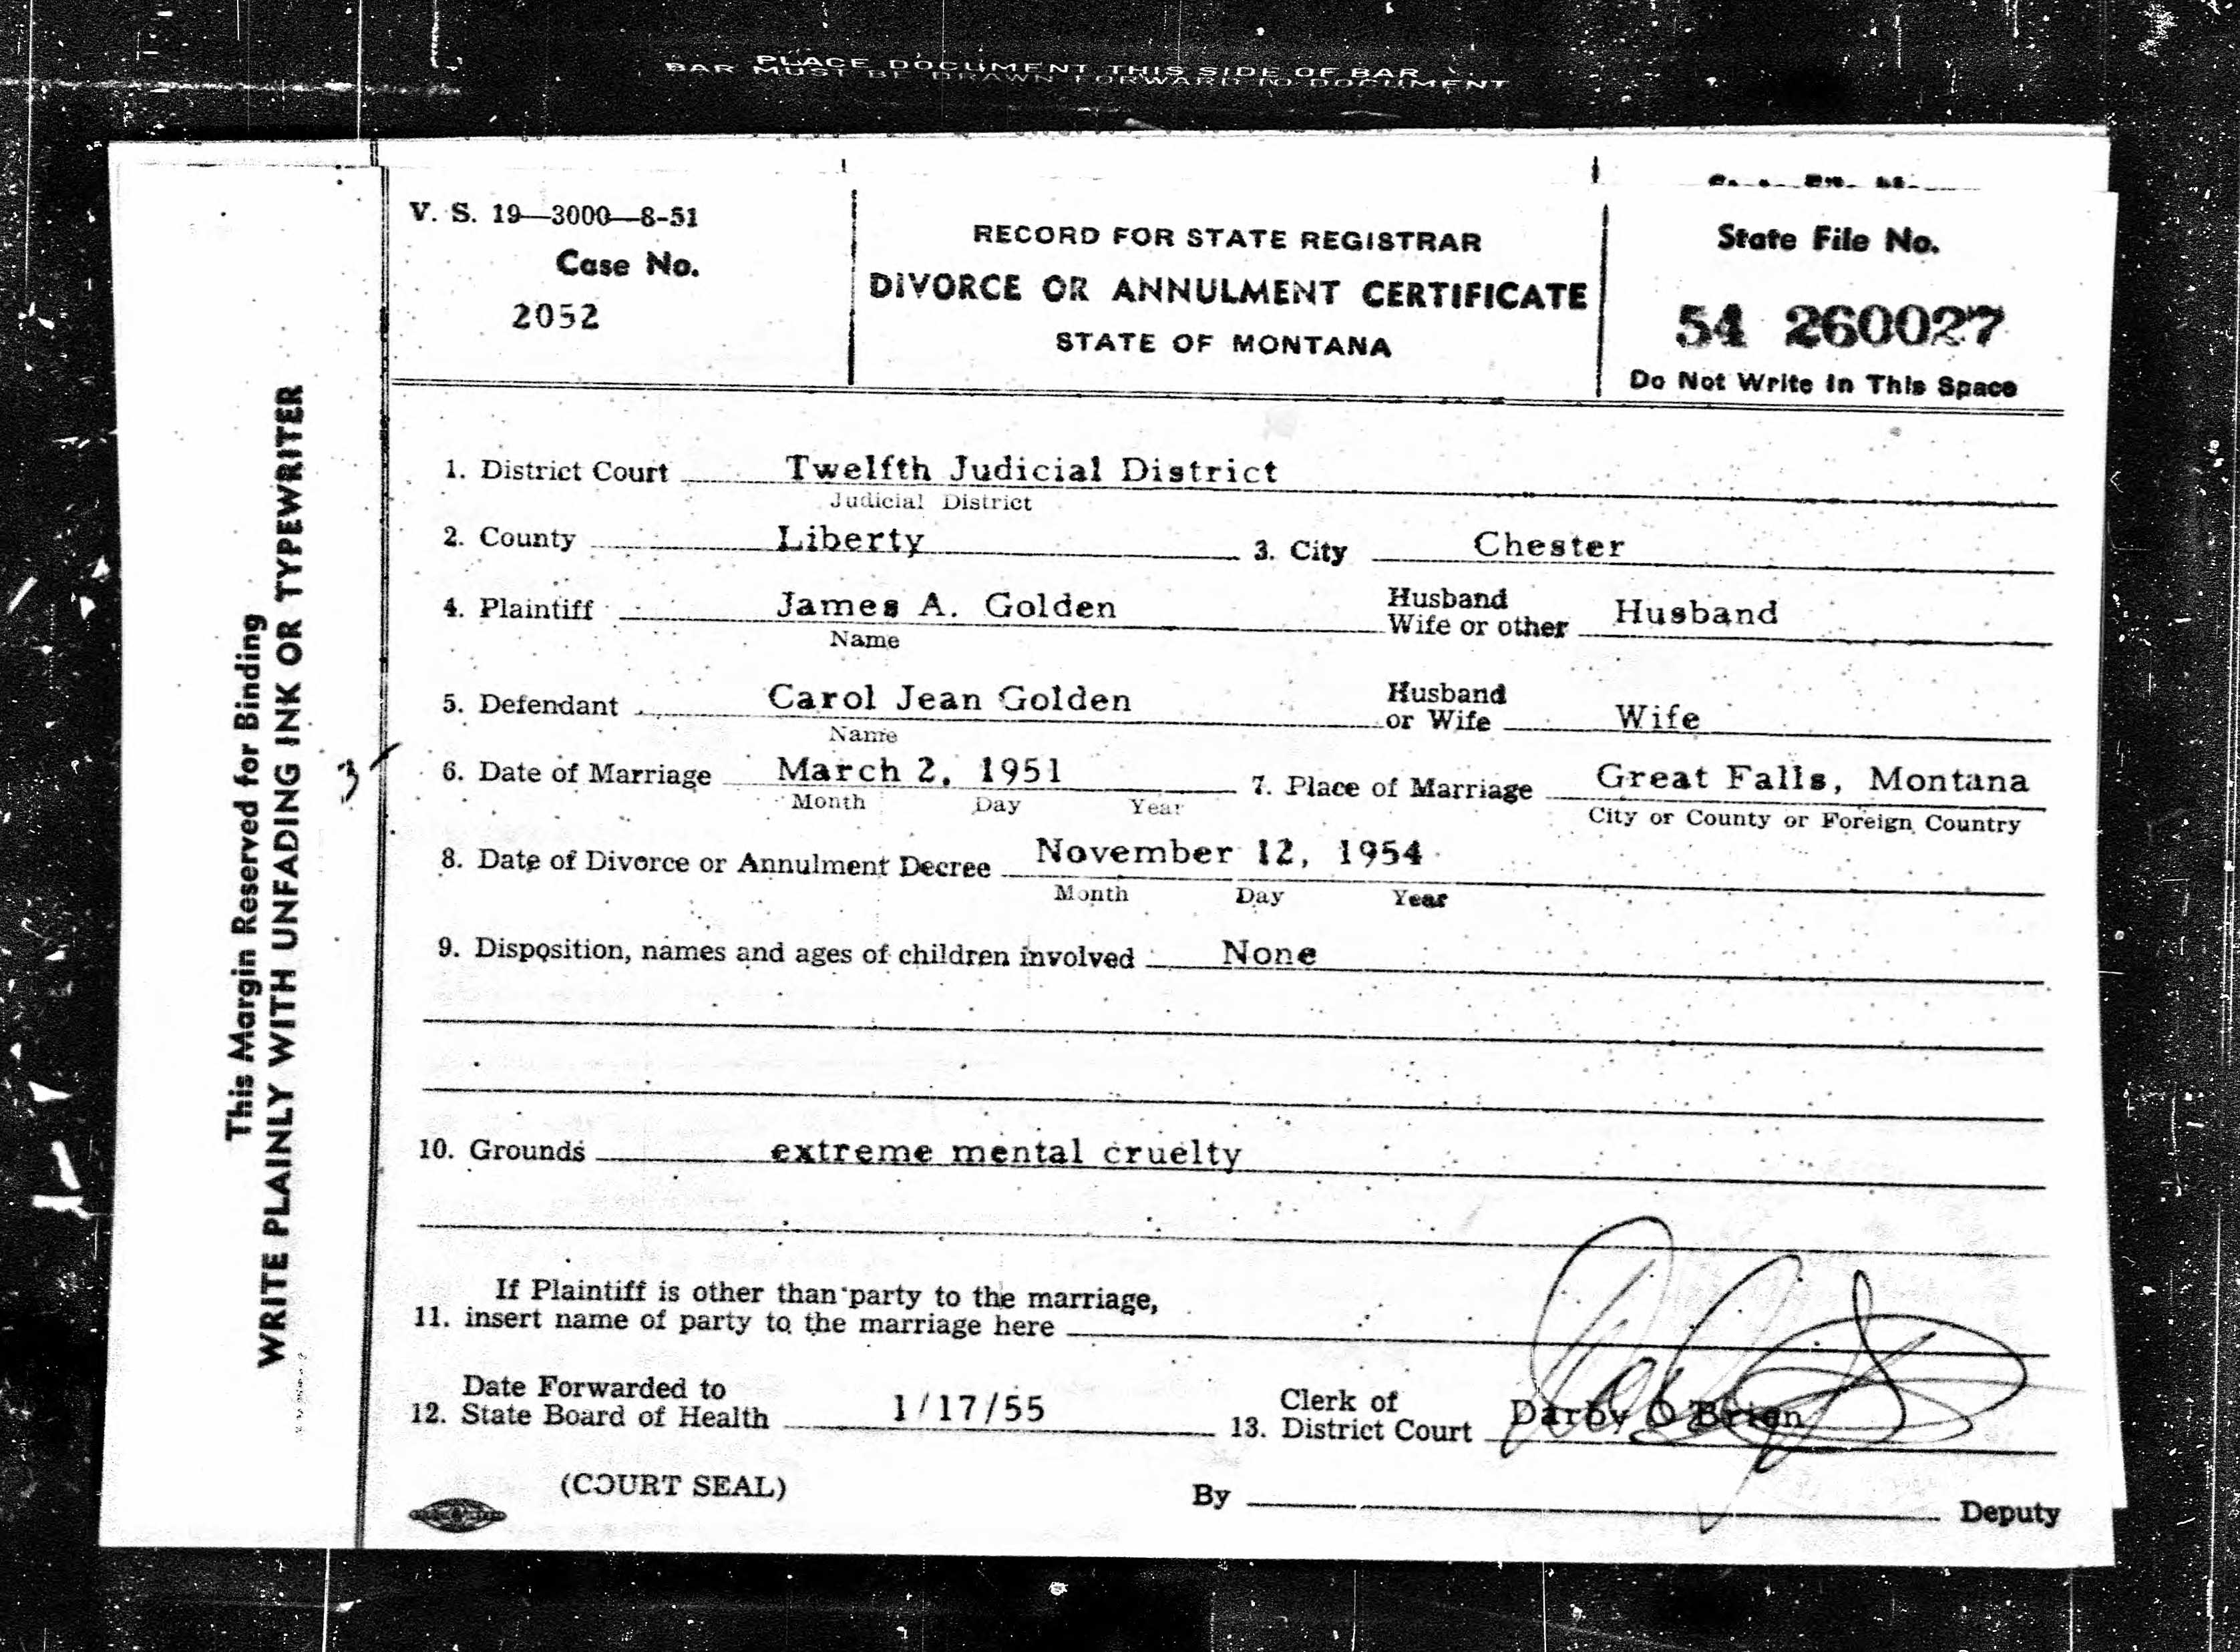 PLACE DOCUMENT THIS SIDE OF BAR
BAR MUST BE DRAWN FORWARD TO DOCUMENT
V. S. 19—3000—8-51
Case No.
2052
RECORD FOR STATE REGISTRAR
DIVORCE OR ANNULMENT CERTIFICATE
STATE OF MONTANA
State File No.
54 260027
Do Not Write In This Space
This Margin Reserved for Binding
WRITE PLAINLY WITH UNFADING INK OR TYPEWRITER
3
1. District Court Twelfth Judicial District
Judicial District
2. County Liberty 3. City Chester
4. Plaintiff James A. Golden Husband Wife or other Husband
Name
5. Defendant Carol Jean Golden Husband or Wife Wife
Name
6. Date of Marriage March 2, 1951 7. Place of Marriage Great Falls, Montana
Month Day Year City or County or Foreign Country
8. Date of Divorce or Annulment Decree November 12, 1954
Month Day Year
9. Disposition, names and ages of children involved None
10. Grounds extreme mental cruelty
If Plaintiff is other than party to the marriage,
11. insert name of party to the marriage here
Date Forwarded to
12. State Board of Health 1/17/55
Clerk of
13. District Court Darby O Brien
(COURT SEAL)
By Deputy